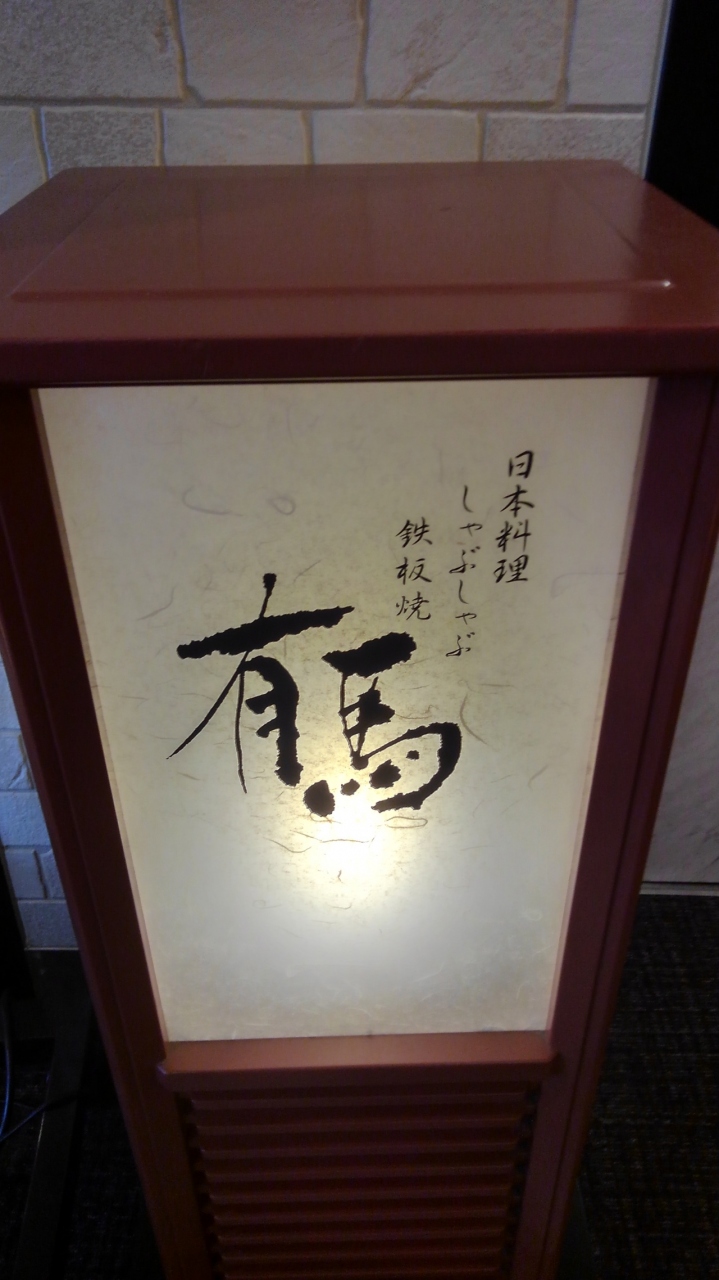 日本料理
しゃぶしゃぶ
鉄板焼
有馬